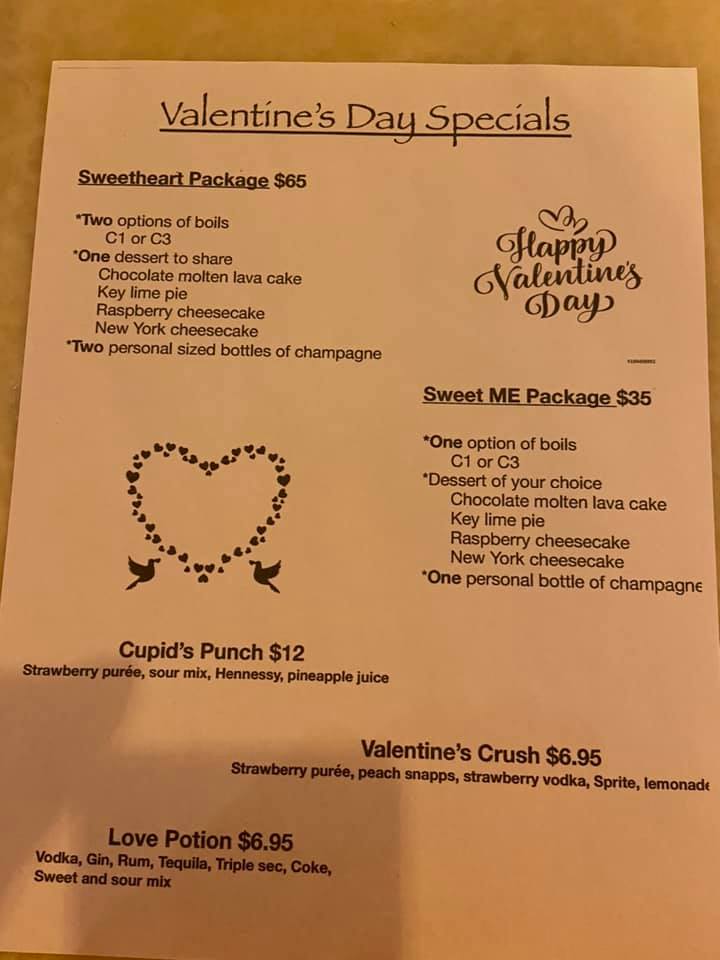 Valentine's Day Specials
Sweetheart Package $65
*Two options of boils
C1 or C3
*One dessert to share
Chocolate molten lava cake
Key lime pie
Raspberry cheesecake
New York cheesecake
*Two personal sized bottles of champagne
Happy
Valentine's
Day
Sweet ME Package $35
*One option of boils
C1 or C3
*Dessert of your choice
Chocolate molten lava cake
Key lime pie
Raspberry cheesecake
New York cheesecake
*One personal bottle of champagne
Cupid's Punch $12
Strawberry purée, sour mix, Hennessy, pineapple juice
Valentine's Crush $6.95
Strawberry purée, peach snapps, strawberry vodka, Sprite, lemonade
Love Potion $6.95
Vodka, Gin, Rum, Tequila, Triple sec, Coke,
Sweet and sour mix